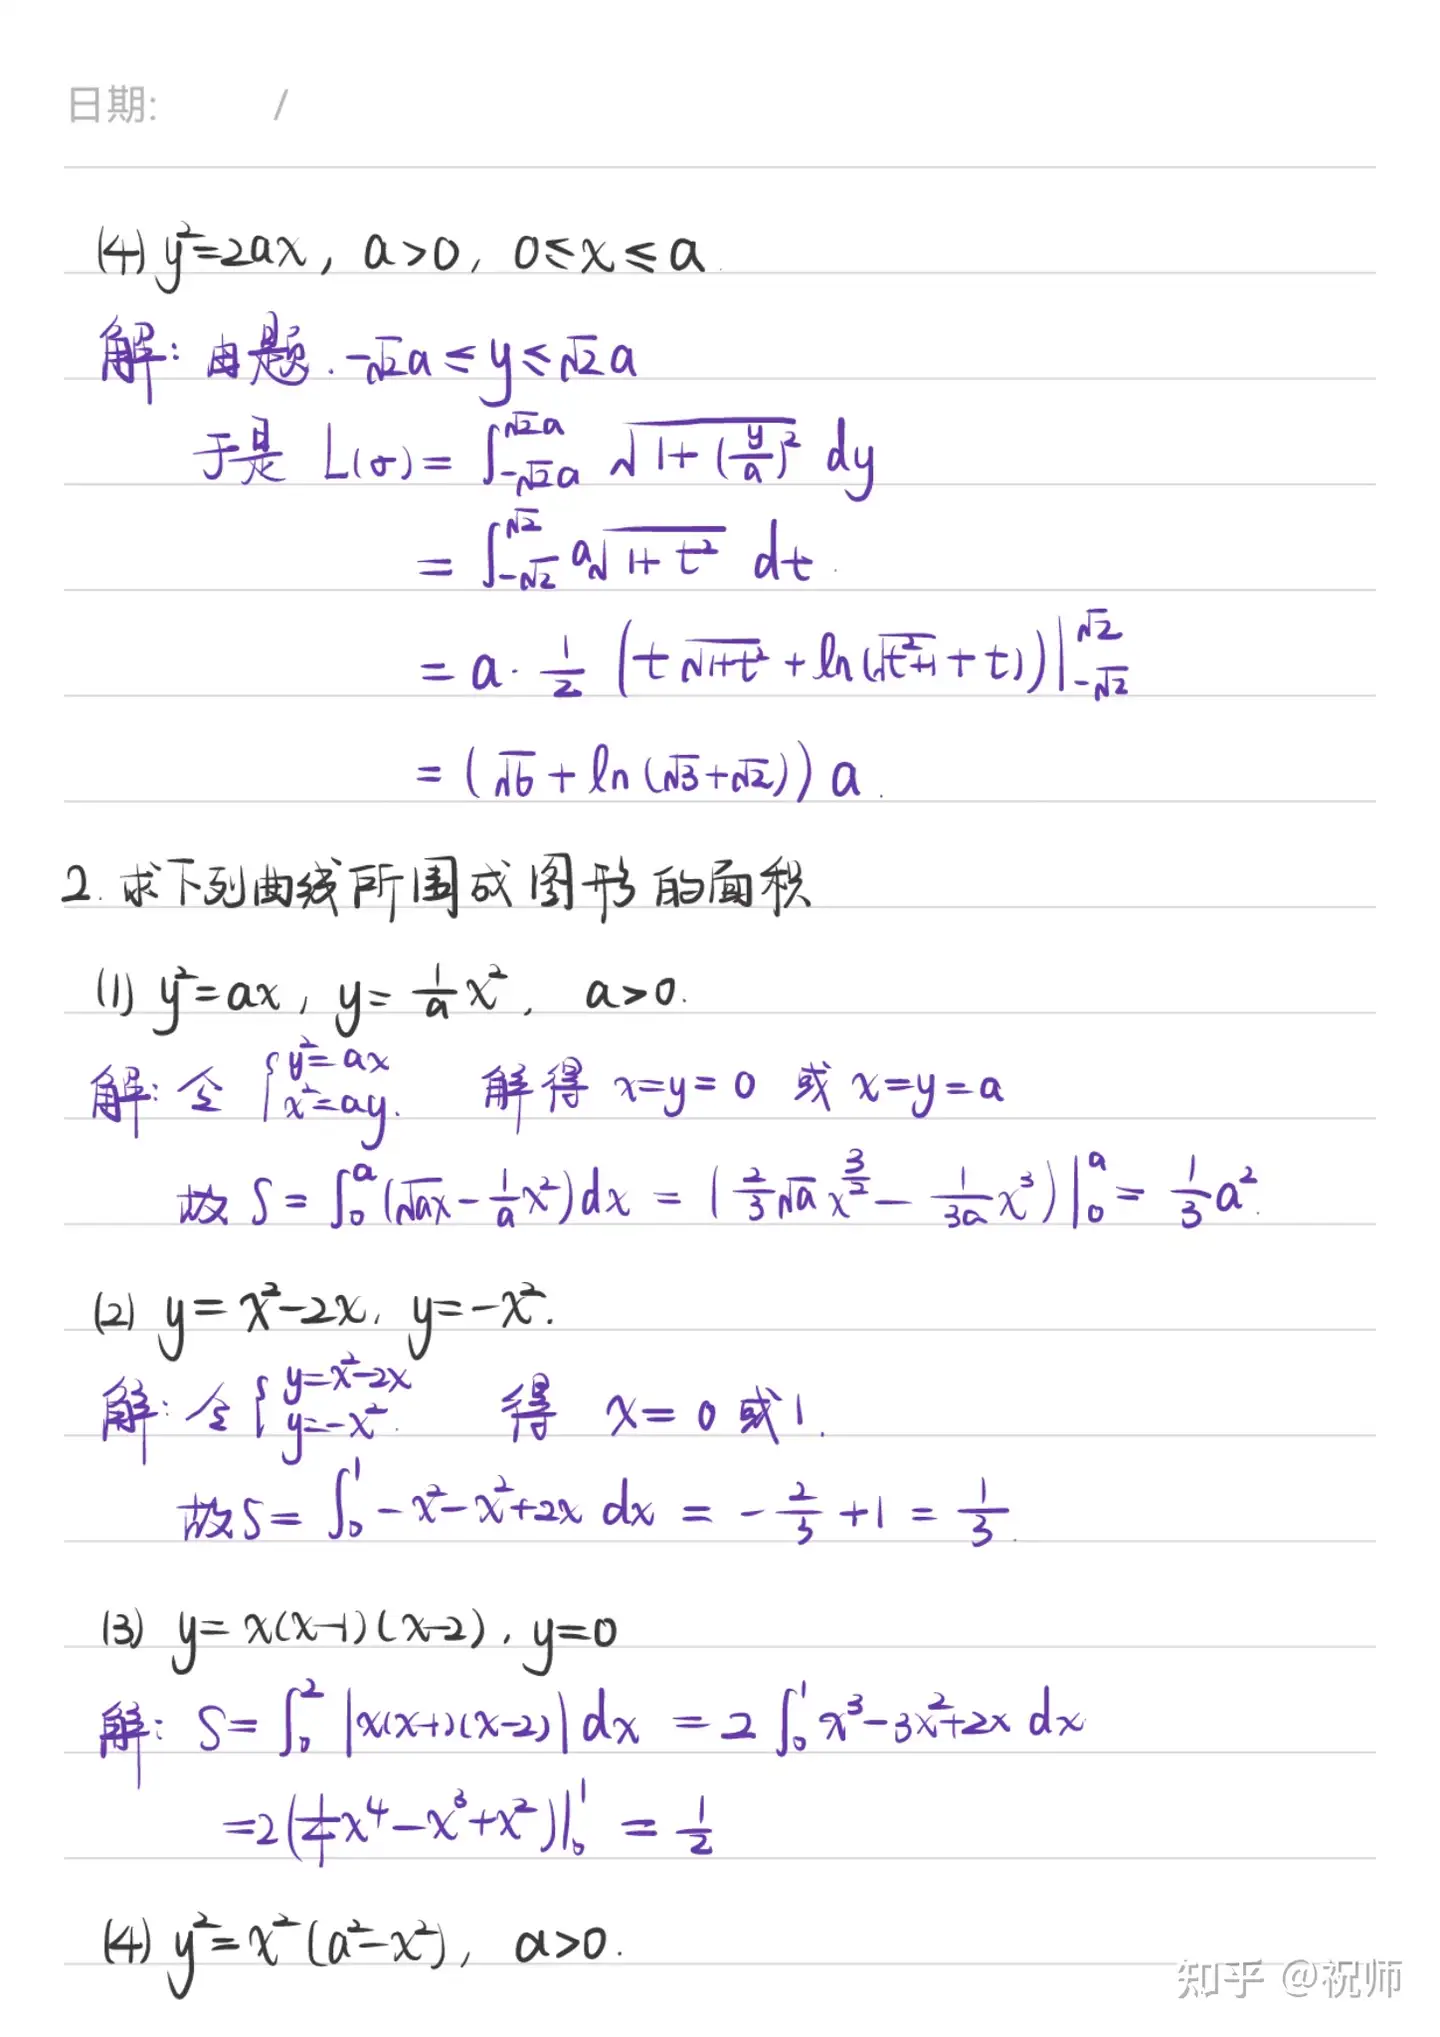 日期: /
(4) y²=2ax, a>0, 0≤x≤a.
解: 由题. -√2a≤y≤√2a
于是 L(σ)= ∫_{-√2a}^{√2a} √(1+(y/a)²) dy
= ∫_{-√2}^{√2} a√(1+t²) dt.
= a·1/2 (t√(1+t²)+ln(√(t²+1)+t))|_{-√2}^{√2}
= (√6+ln(√3+√2))a.
2. 求下列曲线所围成图形的面积
(1) y²=ax, y=1/a x², a>0.
解: 令 { y²=ax x²=ay. 解得 x=y=0 或 x=y=a
故 S=∫_0^a(√ax-1/a x²)dx = (2/3 √a x^{3/2}-1/3a x³)|_0^a= 1/3 a².
(2) y=x²-2x, y=-x².
解: 令 { y=x²-2x y=-x². 得 x=0或1.
故S=∫_0^1 -x²-x²+2x dx = -2/3+1=1/3.
(3) y=x(x-1)(x-2), y=0
解: S=∫_0^2 |x(x-1)(x-2)|dx = 2∫_0^1 x³-3x²+2x dx
=2(1/4 x⁴-x³+x²)|_0^1 = 1/2
(4) y²=x²(a²-x²), a>0.
知乎 @祝师